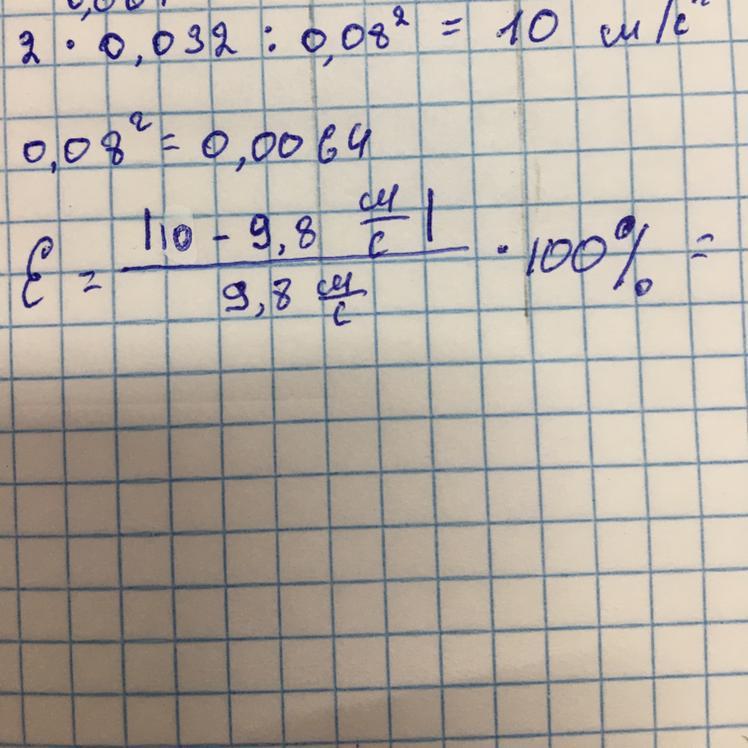 2 · 0,032 : 0,08² = 10 м/с²
0,08² = 0,0064
ε = |10 - 9,8 м/с| / 9,8 м/с · 100% =